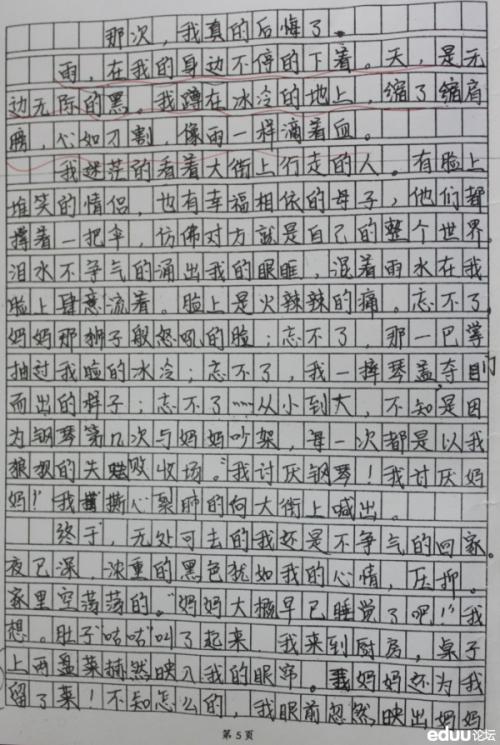 那次，我真的后悔了。
雨，在我的身边不停的下着。天，是无
边无际的黑。我蹲在冰冷的地上，缩了缩肩
膀，心如刀割，像雨一样滴着血。
我迷茫的看着大街上行走的人。有脸上
堆笑的情侣，也有幸福相依的母子，他们都
撑着一把伞，仿佛对方就是自己的整个世界。
泪水不争气的涌出我的眼眶，混着雨水在我
脸上肆意流着。脸上是火辣辣的痛。忘不了，
妈妈那狮子般怒吼的脸；忘不了，那一巴掌
抽过我脸的冰冷；忘不了，我一摔琴盖，夺门
而出的样子；忘不了……从小到大，不知是因
为钢琴第几次与妈妈吵架，每一次都是以我
狼狈的失败收场。“我讨厌钢琴！我讨厌妈
妈！”我撕心裂肺的向大街上喊出。
终于，无处可去的我还是不争气的回家。
夜已深，浓重的黑色犹如我的心情，压抑。
家里空荡荡的。“妈妈大概早已睡觉了吧！”我
想。肚子“咕咕”叫了起来，我来到厨房，桌子
上两盘菜赫然映入我的眼帘。妈妈还为我
留了菜！不知怎么的，我眼前忽然映出妈妈
第5页
eduu论坛